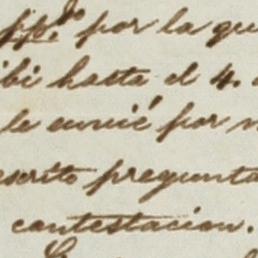 pp.do por la qu
ibi hasta el 4.
le envié por
escrito pregunta
contestacion.